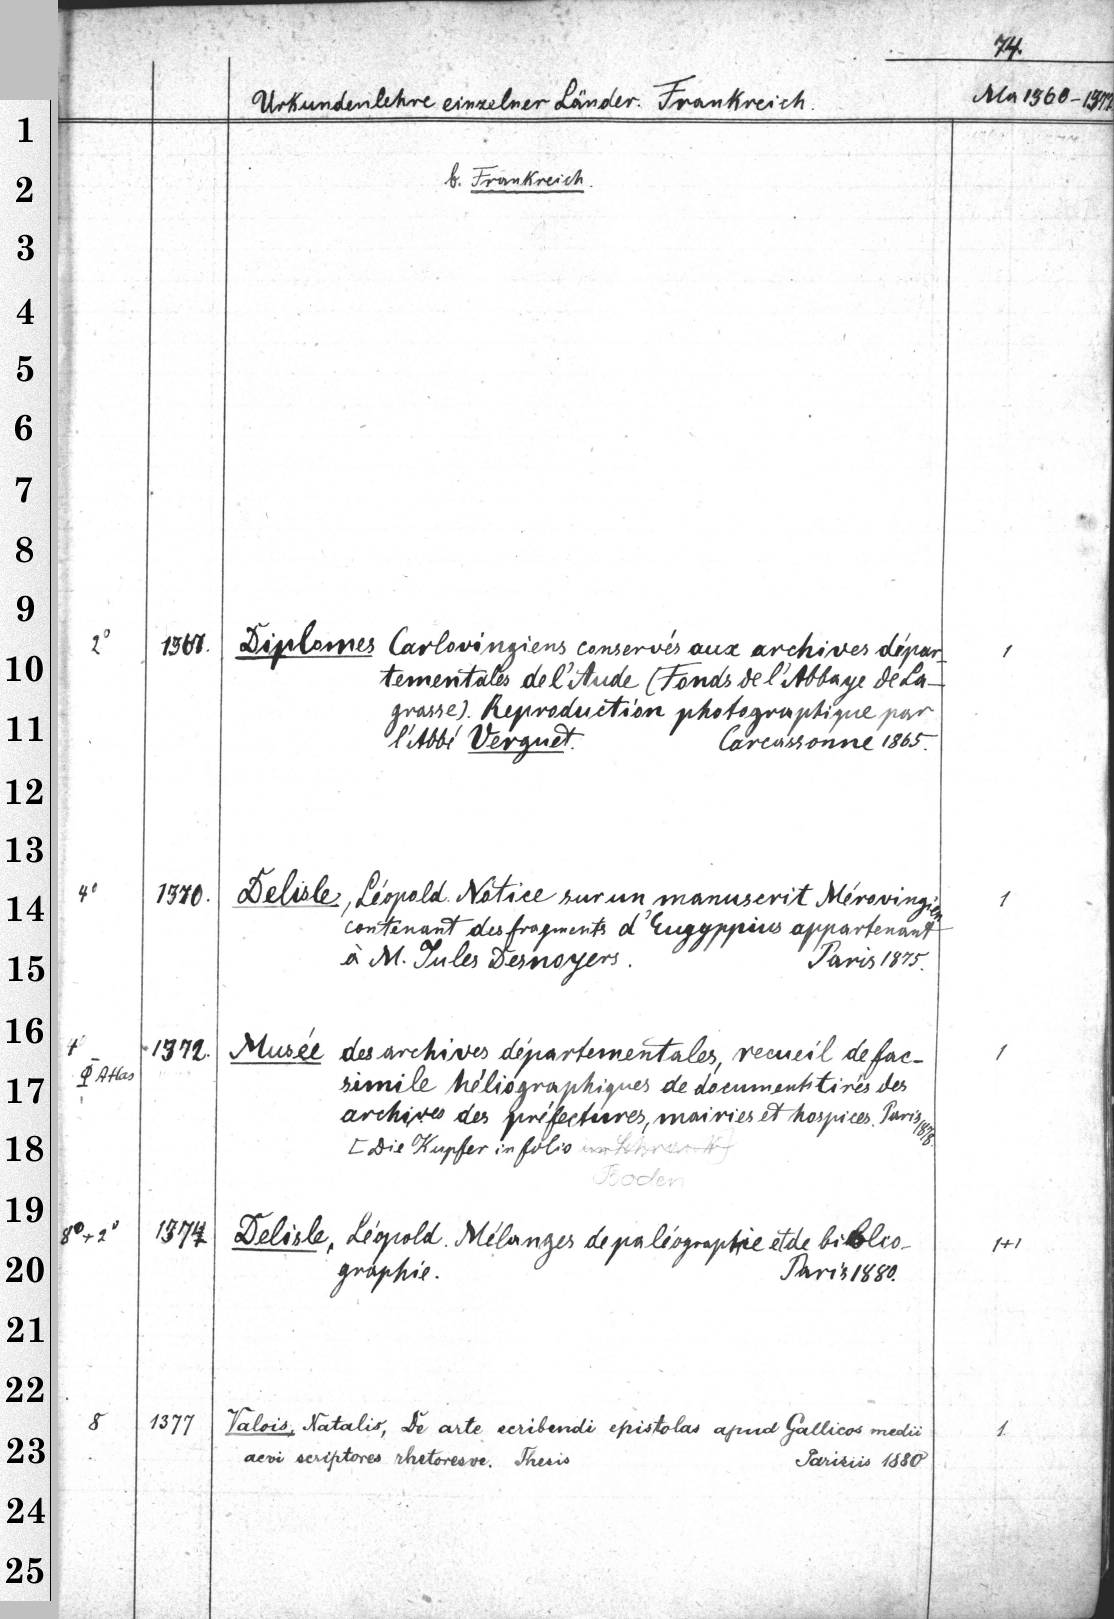 74.
Urkundenlehre einzelner Länder. Frankreich.
Ma 1360-1377
b. Frankreich.
2° 1368. Diplomes Carlovingiens conservés aux archives dépar- 1
tementales de l'Aude (Fonds de l'Abbaye de La-
grasse). Reproduction photographique par
l'Abbé Verguet. Carcassonne 1865.
4° 1370. Delisle, Léopold. Notice sur un manuscrit Mérovingien 1
contenant des fragments d'Eugyppius appartenant
à M. Jules Desnoyers. Paris 1875.
4° 1372. Musée des archives départementales, recueil de fac- 1
Atlas simile héliographiques de documents tirés des
archives des préfectures, mairies et hospices. Paris 1878.
[Die Kupfer in folio
Boden
8°+2° 1374 Delisle, Léopold. Mélanges de paléographie et de biblio- 1+1
graphie. Paris 1880.
8 1377 Valois, Natalis, De arte scribendi epistolas apud Gallicos medii 1
aevi scriptores rhetoresve. Thesis Parisiis 1880
1
2
3
4
5
6
7
8
9
10
11
12
13
14
15
16
17
18
19
20
21
22
23
24
25